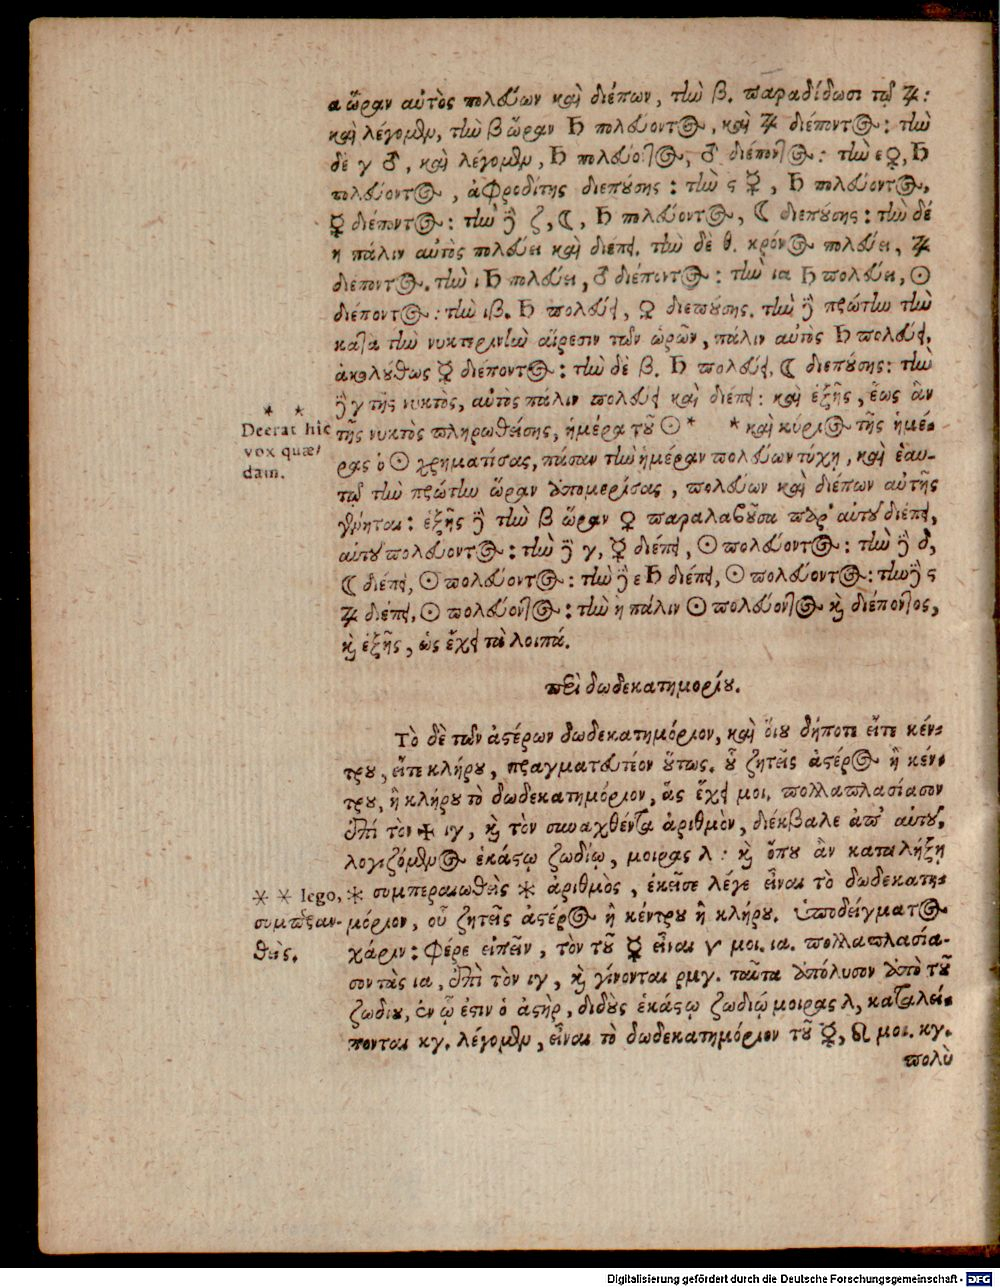 α ὥραν αὐτὸς πολεύων καὶ διέπων, τὴν β. παραδίδωσι τῷ ♃:
καὶ λέγομεν, τὴν β ὥραν ♄ πολεύοντος, καὶ ♃ διέποντος: τὴν
δὲ γ ♂, καὶ λέγομεν, ♄ πολεύοντος, ♂ διέποντος: τὴν ε ♀, ♄
πολεύοντος, ἀφροδίτης διεπούσης: τὴν ς ☿, ♄ πολεύοντος,
☿ διέποντος: τὴν δὲ ζ, ☾, ♄ πολεύοντος, ☾ διεπούσης: τὴν δέ
η πάλιν αὐτὸς πολεύει καὶ διέπει. τὴν δὲ θ. κρόνος πολεύει, ♃
διέποντος. τὴν ι ♄ πολεύει, ♂ διέποντος: τὴν ια ♄ πολεύει, ☉
διέποντος: τὴν ιβ. ♄ πολεύει, ♀ διεπούσης. τὴν δὲ πρώτην τὴν
κατὰ τὴν νυκτερινὴν αἵρεσιν τῶν ὡρῶν, πάλιν αὐτὸς ♄ πολεύει,
ἀκολούθως ☿ διέποντος: τὴν δὲ β. ♄ πολεύει, ☾ διεπούσης: τὴν
δὲ γ τῆς νυκτὸς, αὐτὸς πάλιν πολεύει καὶ διέπει: καὶ ἑξῆς, ἕως ἂν
τῆς νυκτὸς πληρωθείσης, ἡμέρα τοῦ ☉ * * καὶ κύριος τῆς ἡμέ-
ρας ὁ ☉ χρηματίσας, πάσαν τὴν ἡμέραν πολεύων τύχῃ, καὶ ἑαυ-
τῷ τὴν πρώτην ὥραν ἀπομερίσας, πολεύων καὶ διέπων αὐτῆς
γένηται: ἑξῆς δὲ τὴν β ὥραν ♀ παραλαβοῦσα παρ' αὐτοῦ διέπει,
αὐτοῦ πολεύοντος: τὴν δὲ γ, ☿ διέπει, ☉ πολεύοντος: τὴν δὲ δ,
☾ διέπει, ☉ πολεύοντος: τὴν δὲ ε ♄ διέπει, ☉ πολεύοντος: τὴν δὲ ς
♃ διέπει, ☉ πολεύοντος: τὴν η πάλιν ☉ πολεύοντος καὶ διέποντος,
καὶ ἑξῆς, ὡς ἔχει τὰ λοιπά.
* *
Deerat hic
vox quæ-
dam.
περὶ δωδεκατημορίου.
Τὸ δὲ τῶν ἀστέρων δωδεκατημόριον, καὶ ὅιου δήποτε εἴτε κέν-
τρου, εἴτε κλήρου, πραγματευτέον οὕτως. οὗ ζητεῖς ἀστέρος ἢ κέν-
τρου, ἢ κλήρου τὸ δωδεκατημόριον, ἃς ἔχει μοι. πολλαπλασίασον
ἐπί τὸν ✠ ιγ, καὶ τὸν συναχθέντα ἀριθμὸν, διέκβαλε ἀπ' αὐτοῦ,
λογιζόμενος ἑκάστῳ ζωδίῳ, μοιρας λ: καὶ ὅπου ἂν καταλήξῃ
* συμπεραιωθεὶς * ἀριθμὸς, ἐκεῖσε λέγε εἶναι τὸ δωδεκατη-
μόριον, οὗ ζητεῖς ἀστέρος ἢ κέντρου ἢ κλήρου. ὑποδείγματος
χάριν: φέρε εἰπεῖν, τὸν τοῦ ☿ εἶναι ♈ μοι. ια. πολλαπλασία-
σον τὰς ια, ἐπὶ τὸν ιγ, καὶ γίνονται ρμγ. ταῦτα ἀπόλυσον ἀπὸ τοῦ
ζωδίου, ἐν ᾧ ἐστιν ὁ ἀστὴρ, διδοὺς ἑκάστῳ ζωδίῳ μοιρας λ, καταλεί-
πονται κγ. λέγομεν, εἶναι τὸ δωδεκατημόριον τοῦ ☿, ♌ μοι. κγ.
πολὺ
* * lego,
συμπεραν-
θεὶς.
Digitalisierung gefördert durch die Deutsche Forschungsgemeinschaft - DFG